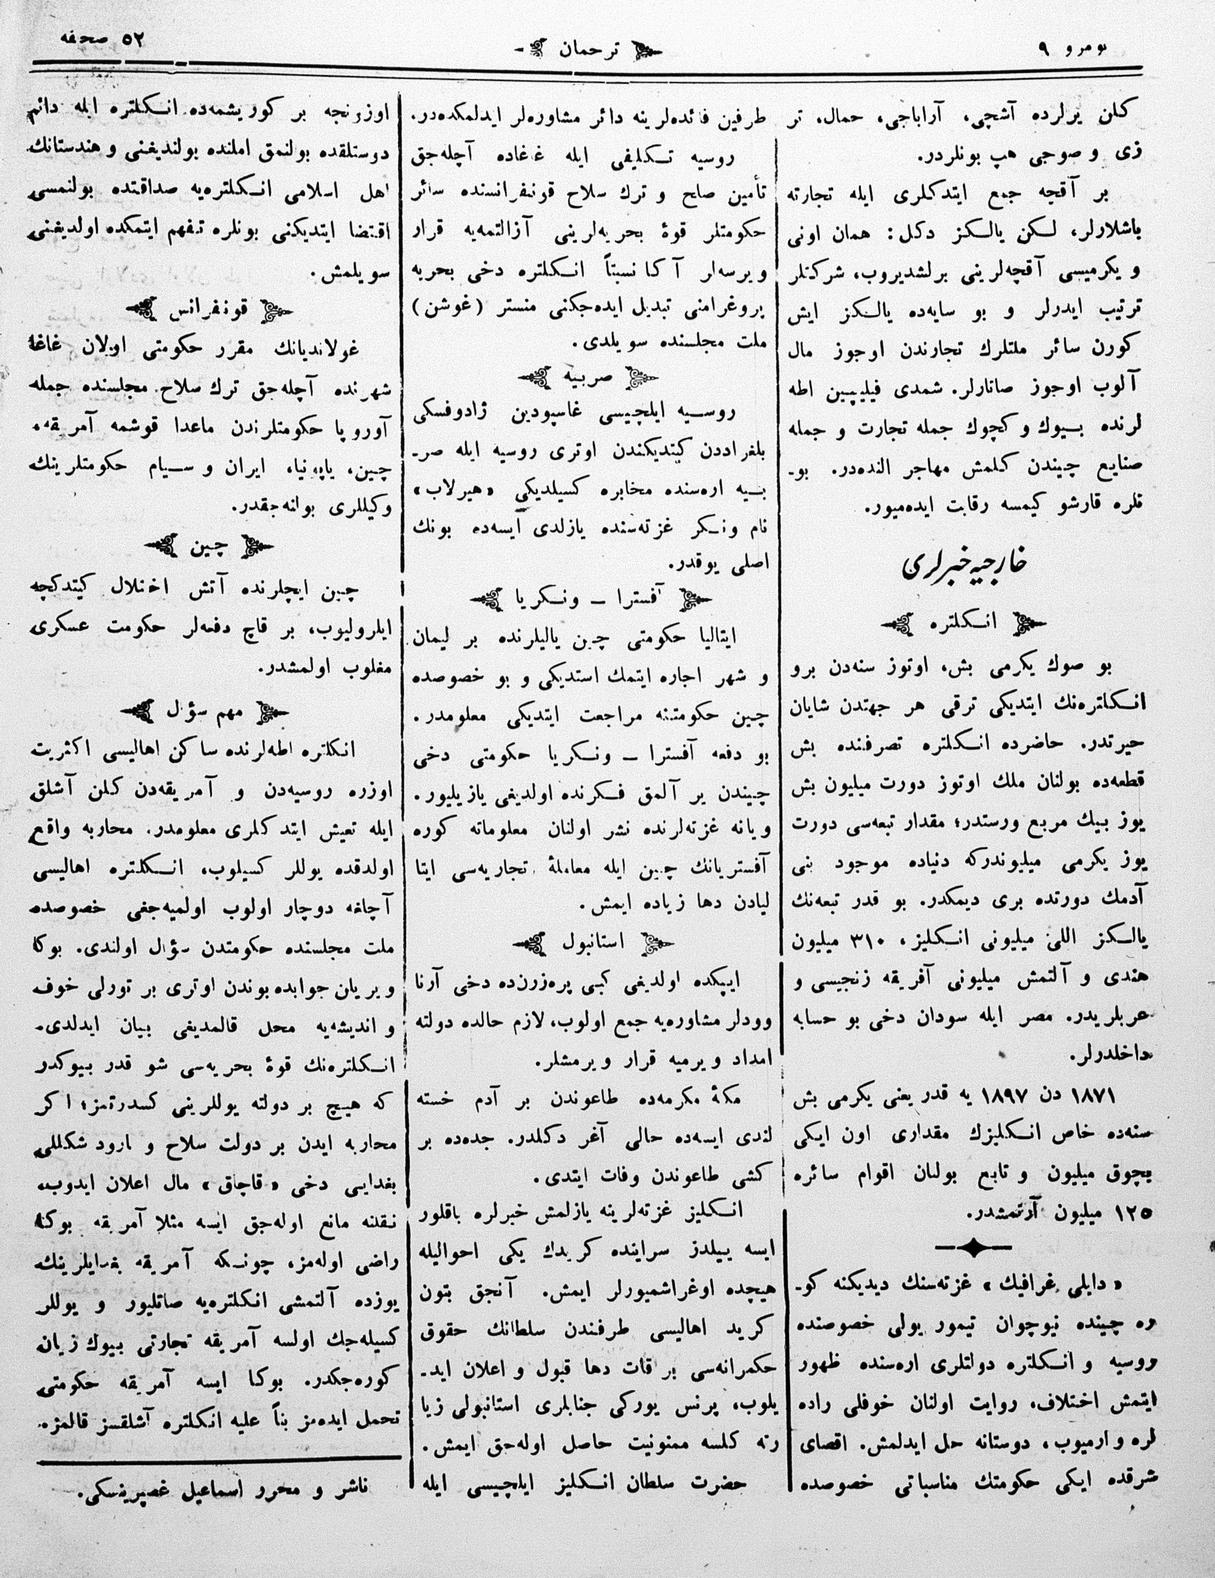 نومرو ٩
ترجمان
٥٢ صحفه
كلن يرلرده آشچی، آراباجی، حمال، تر
زی و صوجی هپ بونلردر.
بر آقچه جمع ايتدكلری ايله تجارته
باشلارلر، لكن يالكز دكل: همان اونی
و يكرميسی آقچه‌لرينی برلشديروب، شركتلر
ترتيب ايدرلر و بو سايه‌ده يالكز ايش
كورن سائر ملتلرك تجارندن اوجوز مال
آلوب اوجوز صاتارلر. شمدی فيليپين اطه
لرنده بيوك و كچوك جمله تجارت و جمله
صنايع چيندن كلمش مهاجر النده‌در. بو-
نلره قارشو كيمسه رقابت ايده‌ميور.
خارجيه خبرلری
انكلتره
بو صوك يكرمی بش، اوتوز سنه‌دن برو
انكلتره‌نك ايتديكی ترقی هر جهتدن شايان
حيرتدر. حاضرده انكلتره تصرفنده بش
قطعه‌ده بولنان ملك اوتوز دورت ميليون بش
يوز بيك مربع ورستدر؛ مقدار تبعه‌سی دورت
يوز يكرمی ميليوندركه دنياده موجود بنی
آدمك دورتده بری ديمكدر. بو قدر تبعه‌نك
يالكز اللی ميليونی انكليز، ٣١٠ ميليون
هندی و آلتمش ميليونی آفريقه زنجيسی و
عربلريدر. مصر ايله سودان دخی بو حسابه
داخلدرلر.
١٨٧١ دن ١٨٩٧ يه قدر يعنی يكرمی بش
سنه‌ده خاص انكليزك مقداری اون ايكی
بچوق ميليون و تابع بولنان اقوام سائره
١٢٥ ميليون آرتمشدر.
« دايلی غرافيك » غزته‌سنك ديديكنه كو-
ره چينده نيوچوان تيمور يولی خصوصنده
روسيه و انكلتره دولتلری اره‌سنده ظهور
ايتمش اختلاف، روايت اولنان خوفلی راده
لره وارميوب، دوستانه حل ايدلمش. اقصای
شرقده ايكی حكومتك مناسباتی خصوصده
طرفين فائده‌لرينه دائر مشاوره‌لر ايدلمكده‌در.
روسيه تكليفی ايله غاغاده آچله‌جق
تأمين صلح و ترك سلاح قونفرانسنده سائر
حكومتلر قوهٔ بحريه‌لرينی آزالتمه‌يه قرار
ويرسه‌لر آكا نسبتاً انكلتره دخی بحريه
پروغرامنی تبديل ايده‌جكنی منستر (غوشن)
ملت مجلسنده سويلدی.
صربيه
روسيه ايلچيسی غاسپودين ژادوفسكی
بلغراددن كيتديكندن اوتری روسيه ايله صر-
بيه اره‌سنده مخابره كسيلديكی «هيرلاب»
نام ونكر غزته‌سنده يازلدی ايسه‌ده بونك
اصلی يوقدر.
آفسترا – ونكريا
ايتاليا حكومتی چين ياليلرنده بر ليمان
و شهر اجاره ايتمك استديكی و بو خصوصده
چين حكومتنه مراجعت ايتديكی معلومدر.
بو دفعه آفسترا – ونكريا حكومتی دخی
چيندن ير آلمق فكرنده اولديغی يازيليور.
ويانه غزته‌لرنده نشر اولنان معلوماته كوره
آفستريانك چين ايله معاملهٔ تجاريه‌سی ايتا
ليادن دها زياده ايمش.
استانبول
ايپكده اولديغی كبی پره‌زرنده دخی آرنا
وودلر مشاوره‌يه جمع اولوب، لازم حالده دولته
امداد ويرميه قرار ويرمشلر.
مكهٔ مكرمه‌ده طاعوندن بر آدم خسته
لندی ايسه‌ده حالی آغر دكلدر. جده‌ده بر
كشی طاعوندن وفات ايتدی.
انكليز غزته‌لرينه يازلمش خبرلره باقلور
ايسه ييلدز سراينده كريدك يكی احواليله
هيچده اوغراشميورلر ايمش. آنجق بتون
كريد اهاليسی طرفندن سلطانك حقوق
حكمرانه‌سی برقات دها قبول و اعلان ايد-
يلوب، پرنس يوركی جنابلری استانبولی زيا
رته كلسه ممنونيت حاصل اوله‌جق ايمش.
حضرت سلطان انكليز ايلچيسی ايله
اوزونجه بر كوريشمه‌ده انكلتره ايله دائم
دوستلقده بولنمق املنده بولنديغنی و هندستانك
اهل اسلامی انكلتره‌يه صداقتده بولنمسی
اقتضا ايتديكنی بونلره تفهم ايتمكده اولديغنی
سويلمش.
قونفرانس
غولانديانك مقرر حكومتی اولان غاغا
شهرنده آچله‌جق ترك سلاح مجلسنده جمله
آوروپا حكومتلرندن ماعدا قوشمه آمريقه،
چين، ياپونيا، ايران و سيام حكومتلرينك
وكيللری بولنه‌جقدر.
چين
چين ايچلرنده آتش اختلال كيتدكچه
ايلروليوب، بر قاچ دفعه‌لر حكومت عسكری
مغلوب اولمشدر.
مهم سؤال
انكلتره اطه‌لرنده ساكن اهاليسی اكثريت
اوزره روسيه‌دن و آمريقه‌دن كلن آشلق
ايله تعيش ايتدكلری معلومدر. محاربه واقع
اولدقده يوللر كسيلوب، انكلتره اهاليسی
آچلغه دوچار اولوب اولميه‌جغی خصوصده
ملت مجلسنده حكومتدن سؤال اولندی. بوكا
ويريان جوابده بوندن اوتری بر تورلی خوف
و انديشه‌يه محل قالمديغی بيان ايدلدی.
انكلتره‌نك قوهٔ بحريه‌سی شو قدر بيوكدر
كه هيچ بر دولته يوللرينی كسدرتمز؛ اكر
محاربه ايدن بر دولت سلاح و بارود شكللی
بغدايی دخی «قاچاق» مال اعلان ايدوب،
نقلنه مانع اوله‌جق ايسه مثلا آمريقه بوكا
راضی اوله‌مز، چونكه آمريقه بغدايلرينك
يوزده آلتمشی انكلتره‌يه صاتليور و يوللر
كسيله‌جك اولسه آمريقه تجارتی بيوك زيان
كوره‌جكدر. بوكا ايسه آمريقه حكومتی
تحمل ايده‌مز بناً عليه انكلتره آشلقسز قالمزه.
ناشر و محرر اسماعيل غصپرينسكی.